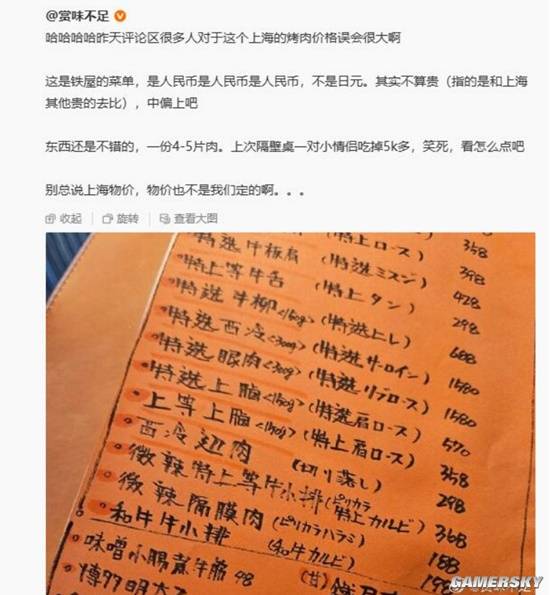 @赏味不足
哈哈哈哈昨天评论区很多人对于这个上海的烤肉价格误会很大啊
这是铁屋的菜单，是人民币是人民币是人民币，不是日元。其实不算贵（指的是和上海
其他贵的去比），中偏上吧
东西还是不错的，一份4-5片肉。上次隔壁桌一对小情侣吃掉5k多，笑死，看怎么点吧
别总说上海物价，物价也不是我们定的啊。。。
收起 旋转 查看大图
(特上ロース) 358
特选牛板肩 (特選ミスジ) 398
特上等牛舌 (特上タン) 428
特選牛柳<150g> (特選ヒレ) 298
特選西冷<300g> (特選サーロイン) 688
特選眼肉<300g> (特選リブロース) 1580
特選上脑<150g> (特選肩ロース) 1580
上等上脑<150g> (特上肩ロース) 570
西冷翅肉 (切り落し) 358
微辣特上等牛小排 (ピリカラ特上カルビ) 298
微辣隔膜肉 (ピリカラハラミ) 368
和牛牛小排 (和牛カルビ) 188
味噌小腸煮牛筋 48
198
GAMERSKY